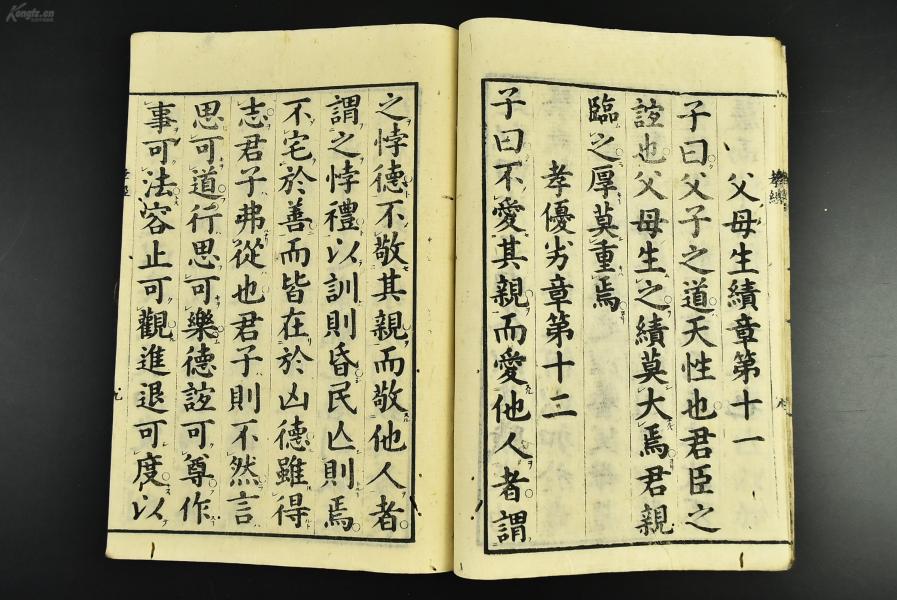 父母生績章第十一
子曰父子之道天性也君臣之
誼也父母生之績莫大焉君親
臨之厚莫重焉
孝優劣章第十二
子曰不愛其親而愛他人者謂
之悖德不敬其親而敬他人者
謂之悖禮以訓則昏民亾則焉
不宅於善而皆在於凶德雖得
志君子弗從也君子則不然言
思可道行思可樂德誼可尊作
事可法容止可觀進退可度以
孝經
九
Kongfz.cn